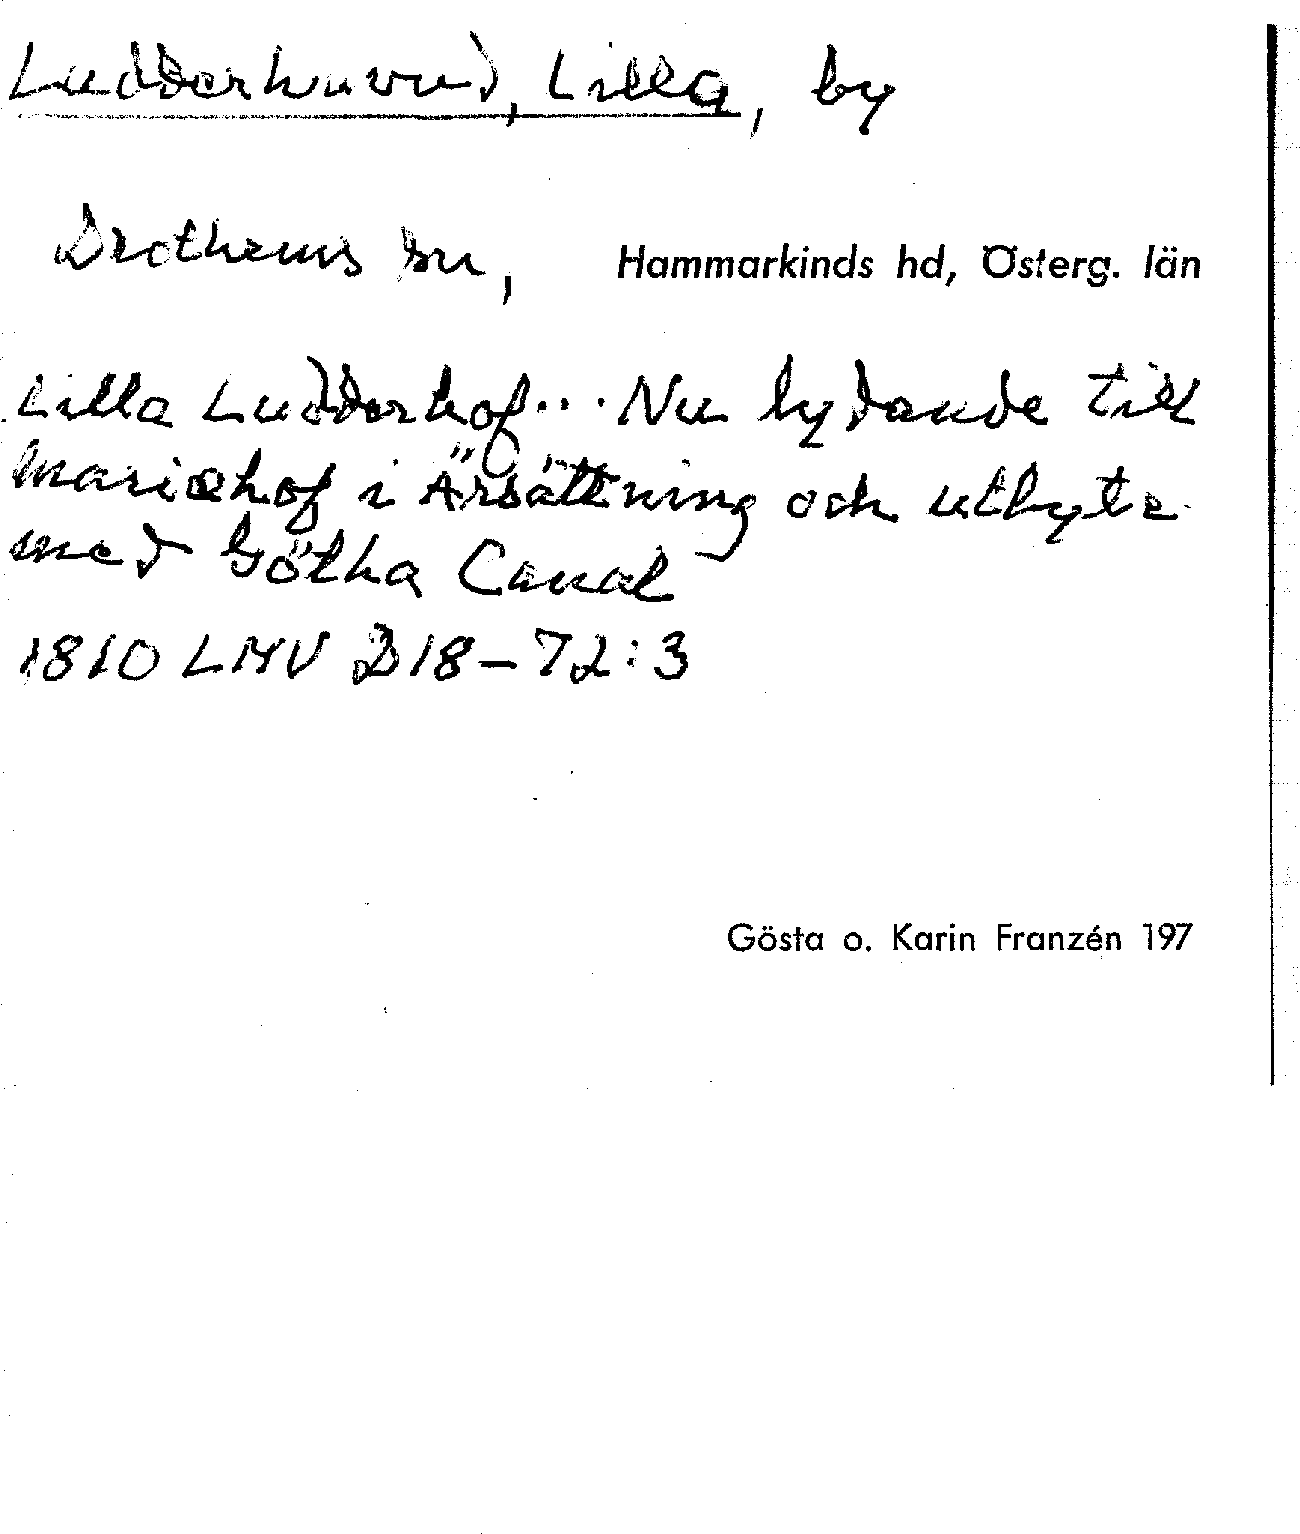 Ludderhuvud, Lilla, by
Drothems sn, Hammarkinds hd, Österg. län
Lilla Ludderhof... Nu lydande till
Mariæhof i Ärsättning och utbyte
med Götha Canal
1810 LMV D18-72:3
Gösta o. Karin Franzén 197